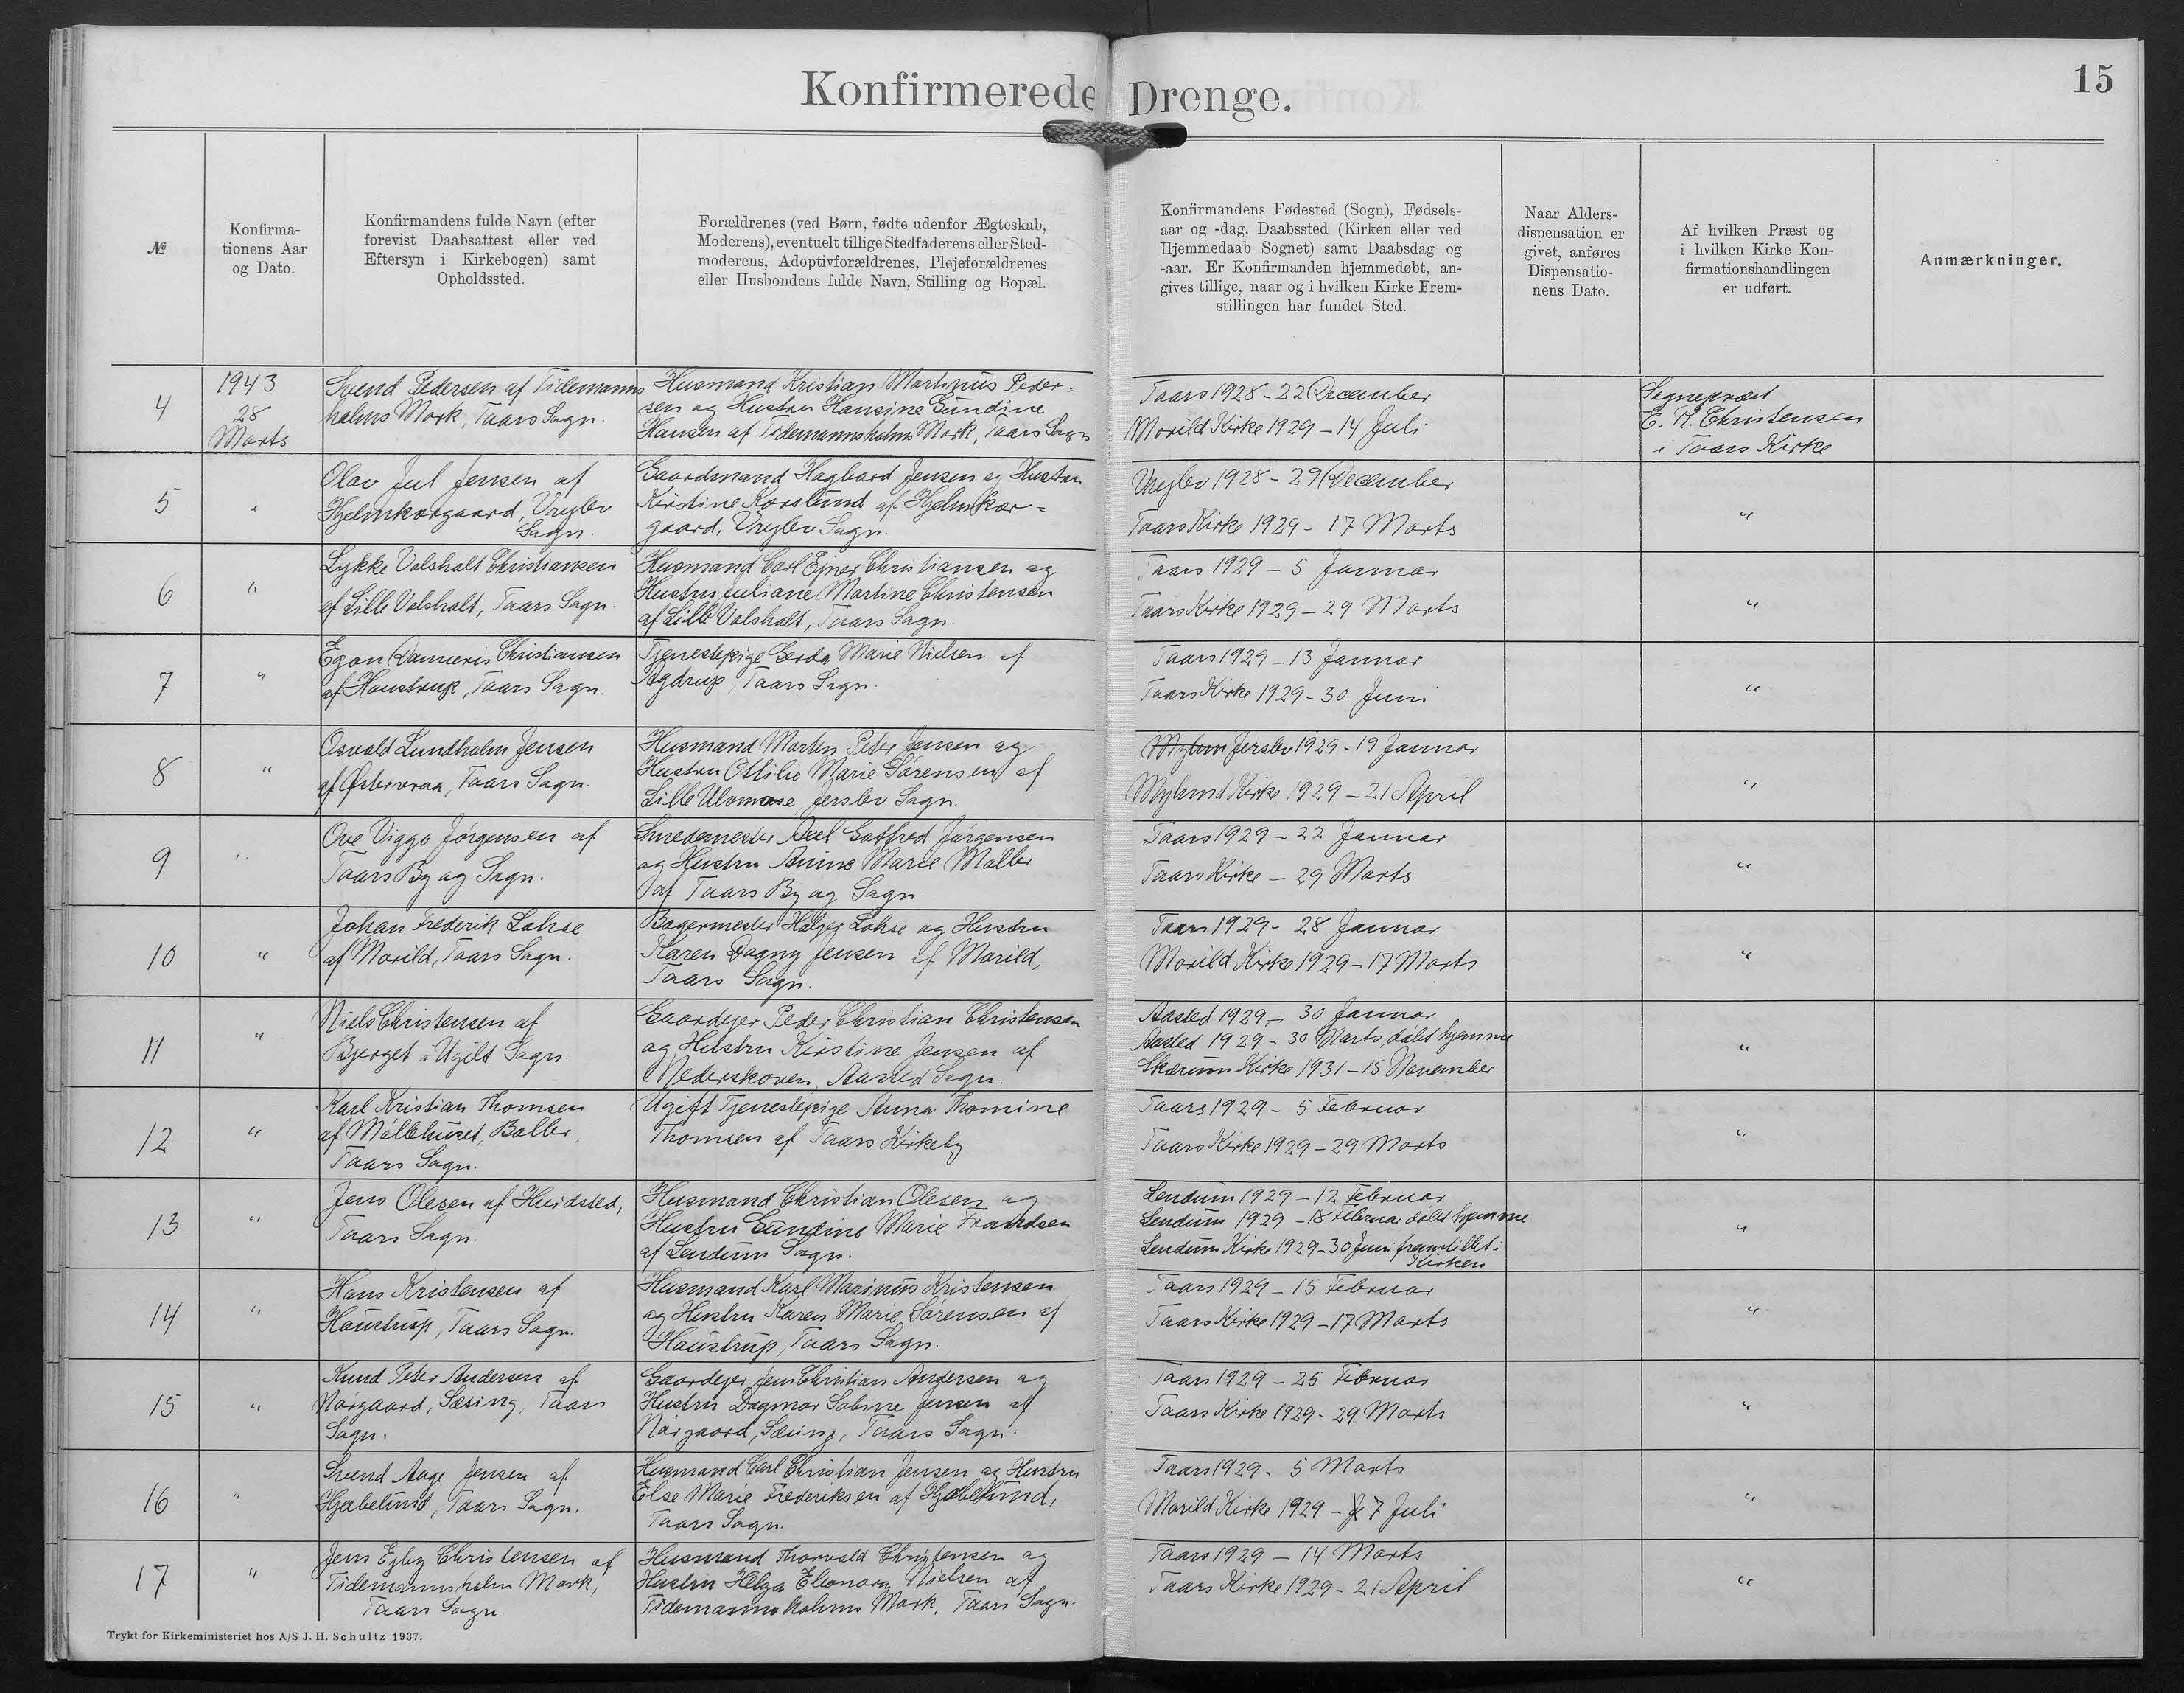 Konfirmerede Drenge.
15
№
Konfirma-
tionens Aar
og Dato.
Konfirmandens fulde Navn (efter
forevist Daabsattest eller ved
Eftersyn i Kirkebogen) samt
Opholdssted.
Forældrenes (ved Børn, fødte udenfor Ægteskab,
Moderens), eventuelt tillige Stedfaderens eller Sted-
moderens, Adoptivforældrenes, Plejeforældrenes
eller Husbondens fulde Navn, Stilling og Bopæl.
Konfirmandens Fødested (Sogn), Fødsels-
aar og -dag, Daabssted (Kirken eller ved
Hjemmedaab Sognet) samt Daabsdag og
-aar. Er Konfirmanden hjemmedøbt, an-
gives tillige, naar og i hvilken Kirke Frem-
stillingen har fundet Sted.
Naar Alders-
dispensation er
givet, anføres
Dispensatio-
nens Dato.
Af hvilken Præst og
i hvilken Kirke Kon-
firmationshandlingen
er udført.
Anmærkninger.
4
1943
28
Marts
Svend Pedersen af Tidemanns
holms Mark, Taars Sogn.
Husmand Kristian Martinus Peder-
sen og Hustru Hansine Gundine
Hansen af Tidemannsholms Mark, Taars Sogn
Taars 1928 - 22 December
Morild Kirke 1929 - 14 Juli
Sognepræst
E. R. Christensen
i Taars Kirke
5
"
Olav Jul Jensen af
Hjelmkærgaard, Vrejlev
Sogn.
Gaardmand Hagbard Jensen og Hustru
Kirstine Korslund af Hjelmkær-
gaard, Vrejlev Sogn.
Vrejlev 1928 - 29 December
Taars Kirke 1929 - 17 Marts
"
6
"
Lykke Valsholt Christiansen
af Lille Valsholt, Taars Sogn.
Husmand Carl Ejner Christiansen og
Hustru Juliane Martine Christensen
af Lille Valsholt, Taars Sogn.
Taars 1929 - 5 Januar
Taars Kirke 1929 - 29 Marts
"
7
"
Egon Danneris Christiansen
af Haustrup, Taars Sogn.
Tjenestepige Gerda Marie Nielsen af
Agdrup, Taars Sogn.
Taars 1929 - 13 Januar
Taars Kirke 1929 - 30 Juni
"
8
"
Osvald Lundholm Jensen
af Østervraa, Taars Sogn.
Husmand Morten Peter Jensen og
Hustru Ottilie Marie Sørensen af
Lille Ulvmose, Jerslev Sogn.
Jerslev 1929 - 19 Januar
Mylund Kirke 1929 - 21 April
"
9
"
Ove Viggo Jørgensen af
Taars By og Sogn.
Smedemester Axel Gotfred Jørgensen
og Hustru Anine Marie Møller
af Taars By og Sogn.
Taars 1929 - 22 Januar
Taars Kirke - 29 Marts
"
10
"
Johan Frederik Lohse
af Morild, Taars Sogn.
Bagermester Holger Lohse og Hustru
Karen Dagny Jensen af Morild,
Taars Sogn.
Taars 1929 - 28 Januar
Morild Kirke 1929 - 17 Marts
"
11
"
Niels Christensen af
Bjerget i Ugilt Sogn.
Gaardejer Peder Christian Christensen
og Hustru Kirstine Jensen af
Nederskoven, Aasted Sogn.
Aasted 1929 - 30 Januar
Aasted 1929 - 30 Marts, døbt hjemme
Skærum Kirke 1931 - 15 November
"
12
"
Karl Kristian Thomsen
af Møllehuset, Boller,
Taars Sogn.
Ugift Tjenestepige Anna Thomine
Thomsen af Taars Kirkeby
Taars 1929 - 5 Februar
Taars Kirke 1929 - 29 Marts
"
13
"
Jens Olesen af Hvidsted,
Taars Sogn.
Husmand Christian Olesen og
Hustru Gundine Marie Frandsen
af Lendum Sogn.
Lendum 1929 - 12 Februar
Lendum 1929 - 18 Februar døbt hjemme
Lendum Kirke 1929 - 30 Juni fremstillet i
Kirken
"
14
"
Hans Kristensen af
Haustrup, Taars Sogn.
Husmand Karl Marinus Kristensen
og Hustru Karen Marie Sørensen af
Haustrup, Taars Sogn.
Taars 1929 - 15 Februar
Taars Kirke 1929 - 17 Marts
"
15
"
Knud Peter Andersen af
Nørgaard, Sæsing, Taars
Sogn.
Gaardejer Jens Christian Andersen og
Hustru Dagmar Sabine Jensen af
Nørgaard, Sæsing, Taars Sogn.
Taars 1929 - 25 Februar
Taars Kirke 1929 - 29 Marts
"
16
"
Svend Aage Jensen af
Hjæbelund, Taars Sogn.
Husmand Carl Christian Jensen og Hustru
Else Marie Frederiksen af Hjæbelund,
Taars Sogn.
Taars 1929 - 5 Marts
Morild Kirke 1929 - 7 Juli
"
17
"
Jens Ejby Christensen af
Tidemannsholm Mark,
Taars Sogn
Husmand Thorvald Christensen og
Hustru Helga Eleonora Nielsen af
Tidemannsholms Mark, Taars Sogn.
Taars 1929 - 14 Marts
Taars Kirke 1929 - 21 April
"
Trykt for Kirkeministeriet hos A/S J. H. Schultz 1937.